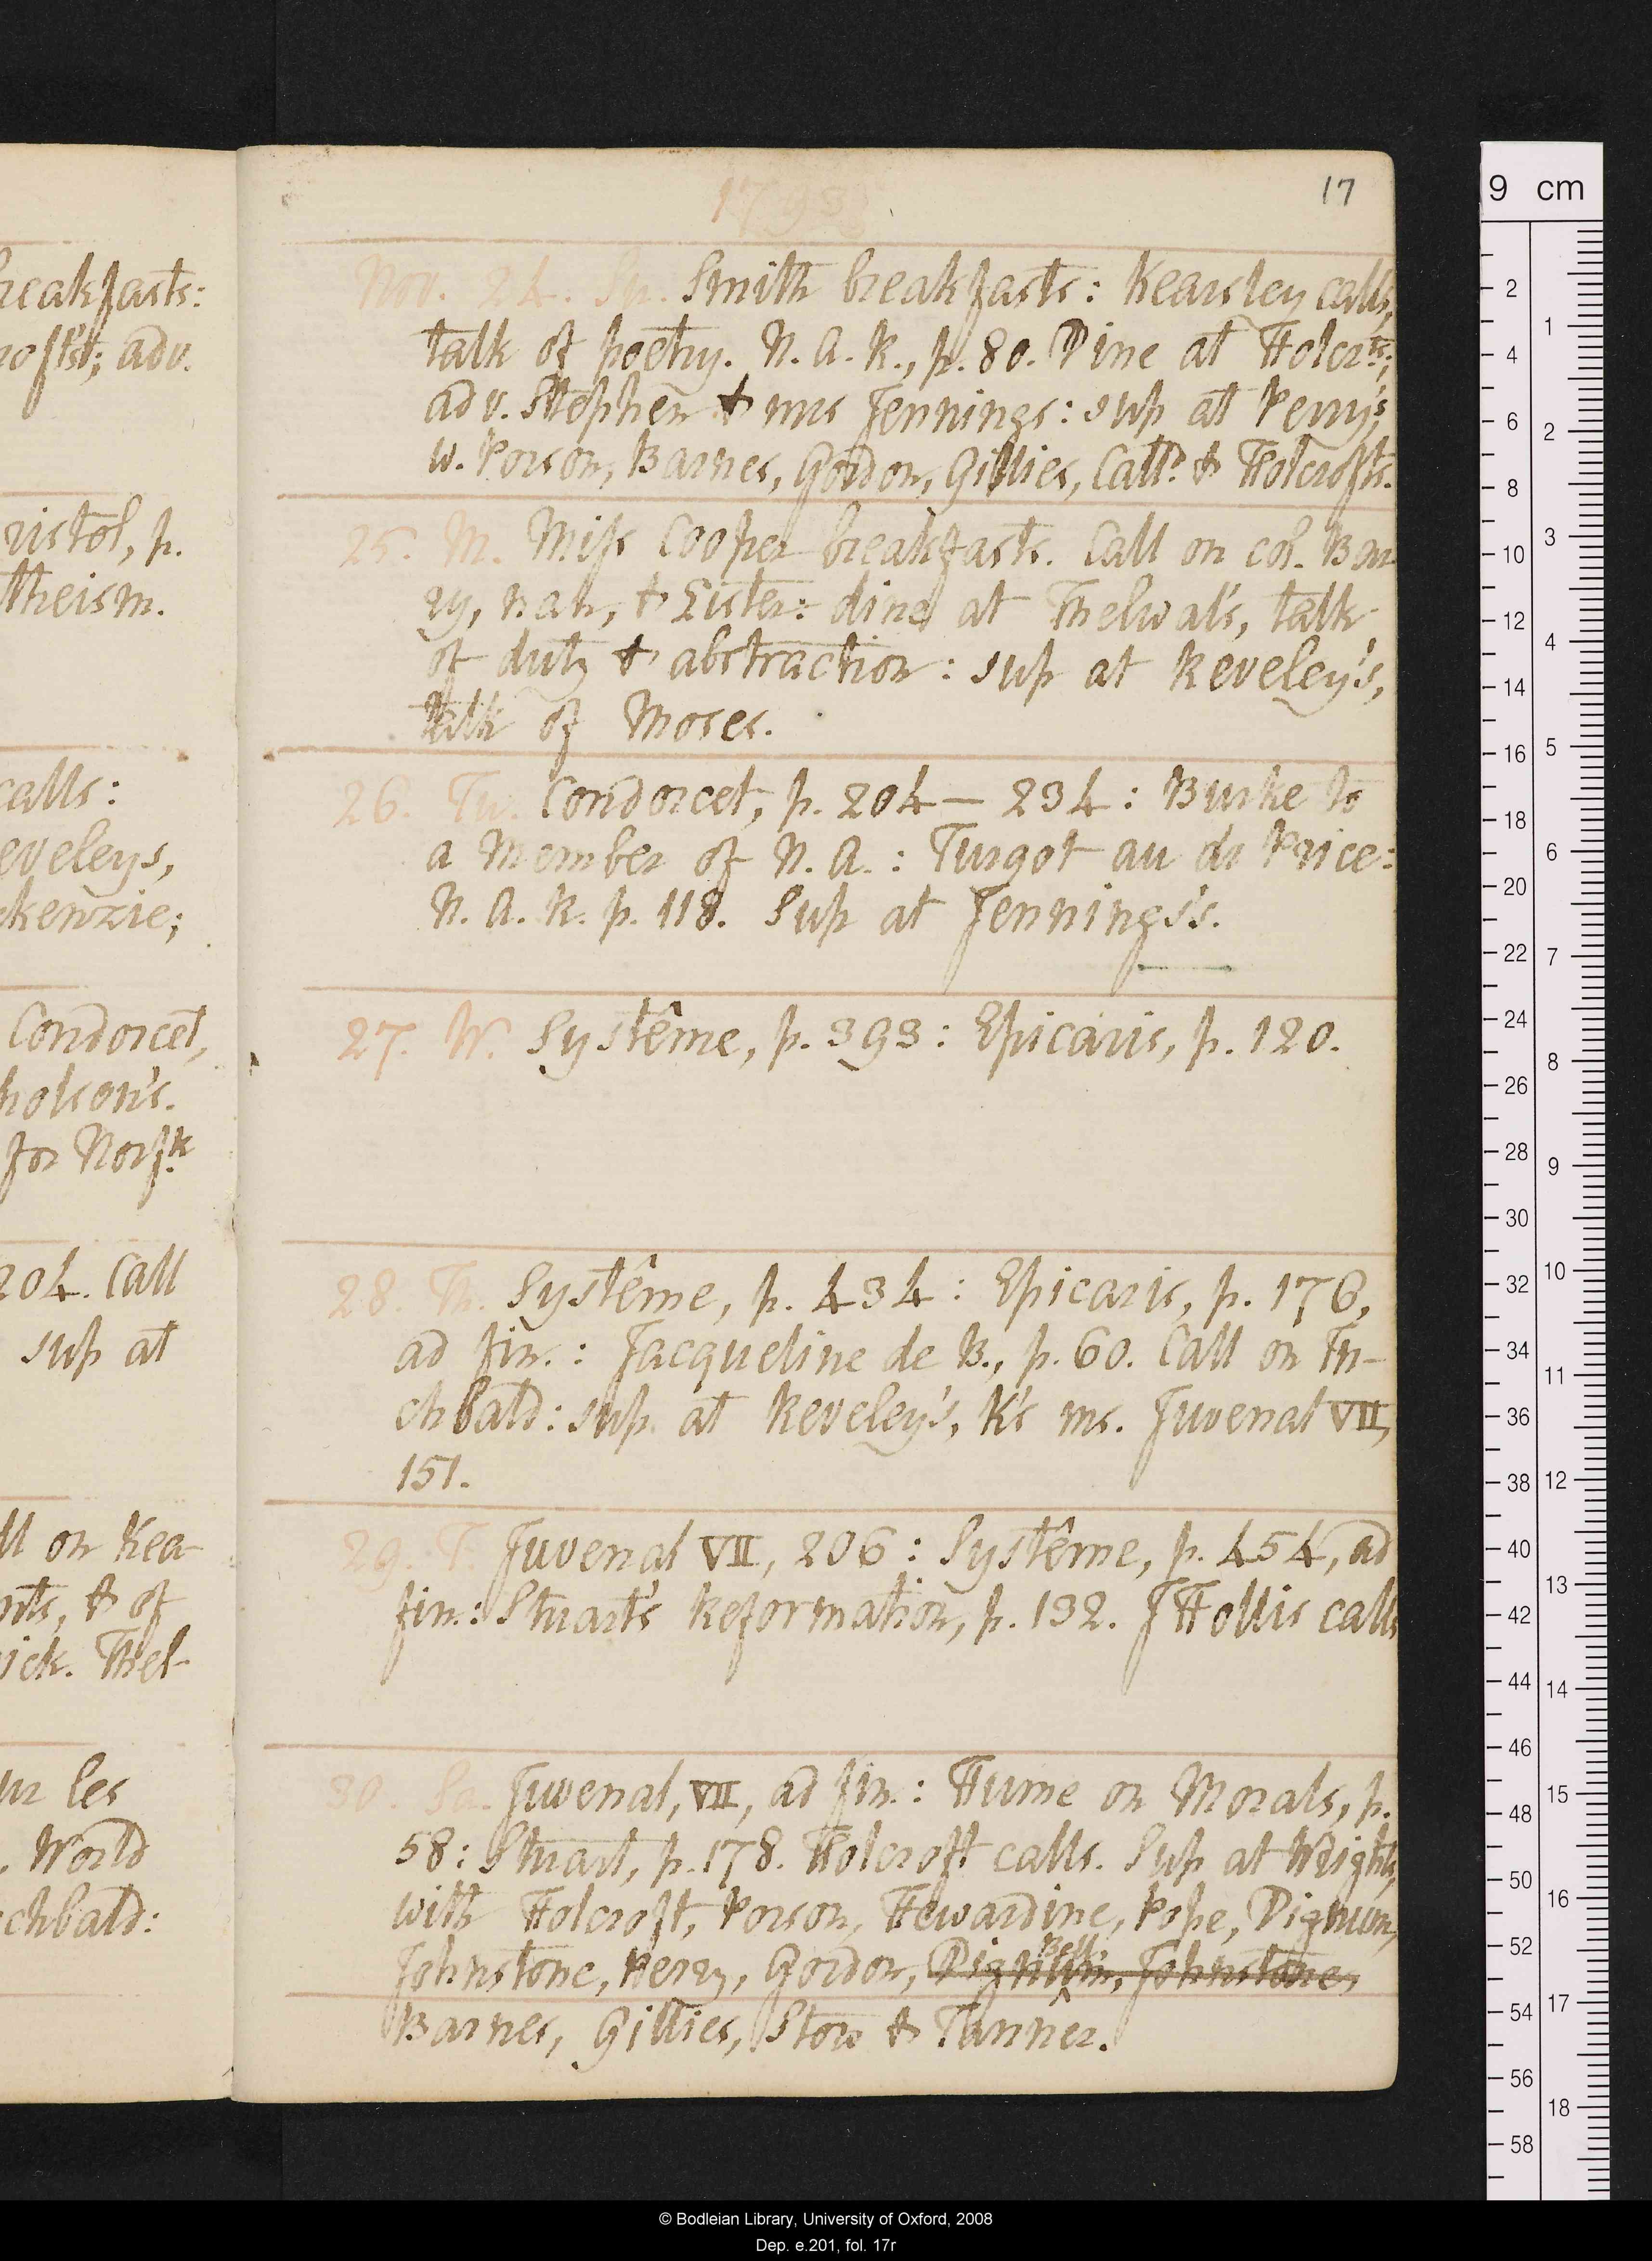 reakfasts:
roft's; adv.
ristol, p.
theism.
calls:
eveleys,
kenzie;
Condorcet,
holson's.
for Norfk
204. Call
sup at
ll on Kea-
nts, & of
ick. Thel-
ur les
, World
chbald:
17
1793
Nov. 24. Su. Smith breakfasts: Kearsley calls,
talk of poetry. N. A. R., p. 80. Dine at Holcrts;
adv. Stephen & mrs Jennings: sup at Perry's,
w. Porson, Barnes, Gordon, Gillies, Calld. & Holcrofts.
25. M. Miss Cooper breakfasts. Call on col. Bar
ry, nah, & Sister: dine at Thelwal's, talk
of duty & abstraction: sup at Reveley's,
talk of Moses.
26. Tu. Condorcet, p. 204—234: Burke to
a Member of N. A.: Turgot au dr Price:
N. A. R. p. 118. Sup at Jennings's.
27. W. Systême, p. 393: Epicaris, p. 120.
28. Th. Systême, p. 434: Epicaris, p. 176,
ad fin.: Jacqueline de B., p. 60. Call on In-
chbald: sup at Reveley's, R's ms. Juvenal VII,
151.
29. F. Juvenal VII, 206: Systême, p. 454, ad
fin.: Stuart's Reformation, p. 132. J Hollis calls
30. Sa. Juvenal, VII, ad fin.: Hume on Morals, p.
58: Stuart, p. 178. Holcroft calls. Sup at Wrights,
with Holcroft, Porson, Hewardine, Pope, Dignum,
Johnstone, Merry, Gordon, Dignum, Johnstone,
Bell
Barnes, Gillies, Stow & Tanner.
9 cm
2
4
6
8
10
12
14
16
18
20
22
24
26
28
30
32
34
36
38
40
42
44
46
48
50
52
54
56
58
1
2
3
4
5
6
7
8
9
10
11
12
13
14
15
16
17
18
© Bodleian Library, University of Oxford, 2008
Dep. e.201, fol. 17r